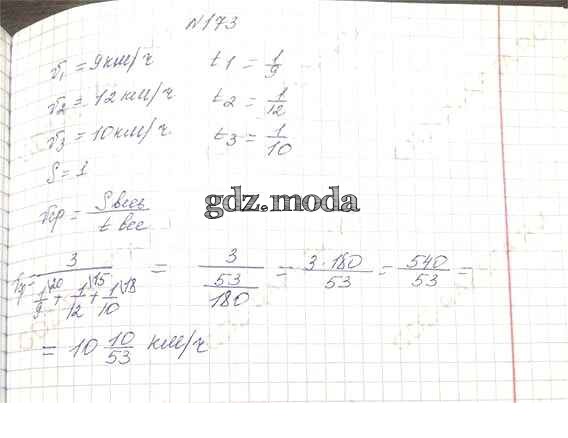 №173
v₁ = 9 км/ч t1 = 1/9
v₂ = 12 км/ч t2 = 1/12
v₃ = 10 км/ч t3 = 1/10
S = 1
vср = S весь / t все
gdz.moda
vср = 3 / (1/9\20 + 1/12\15 + 1/10\18) = 3 / (53/180) = 3·180/53 = 540/53 =
= 10 10/53 км/ч